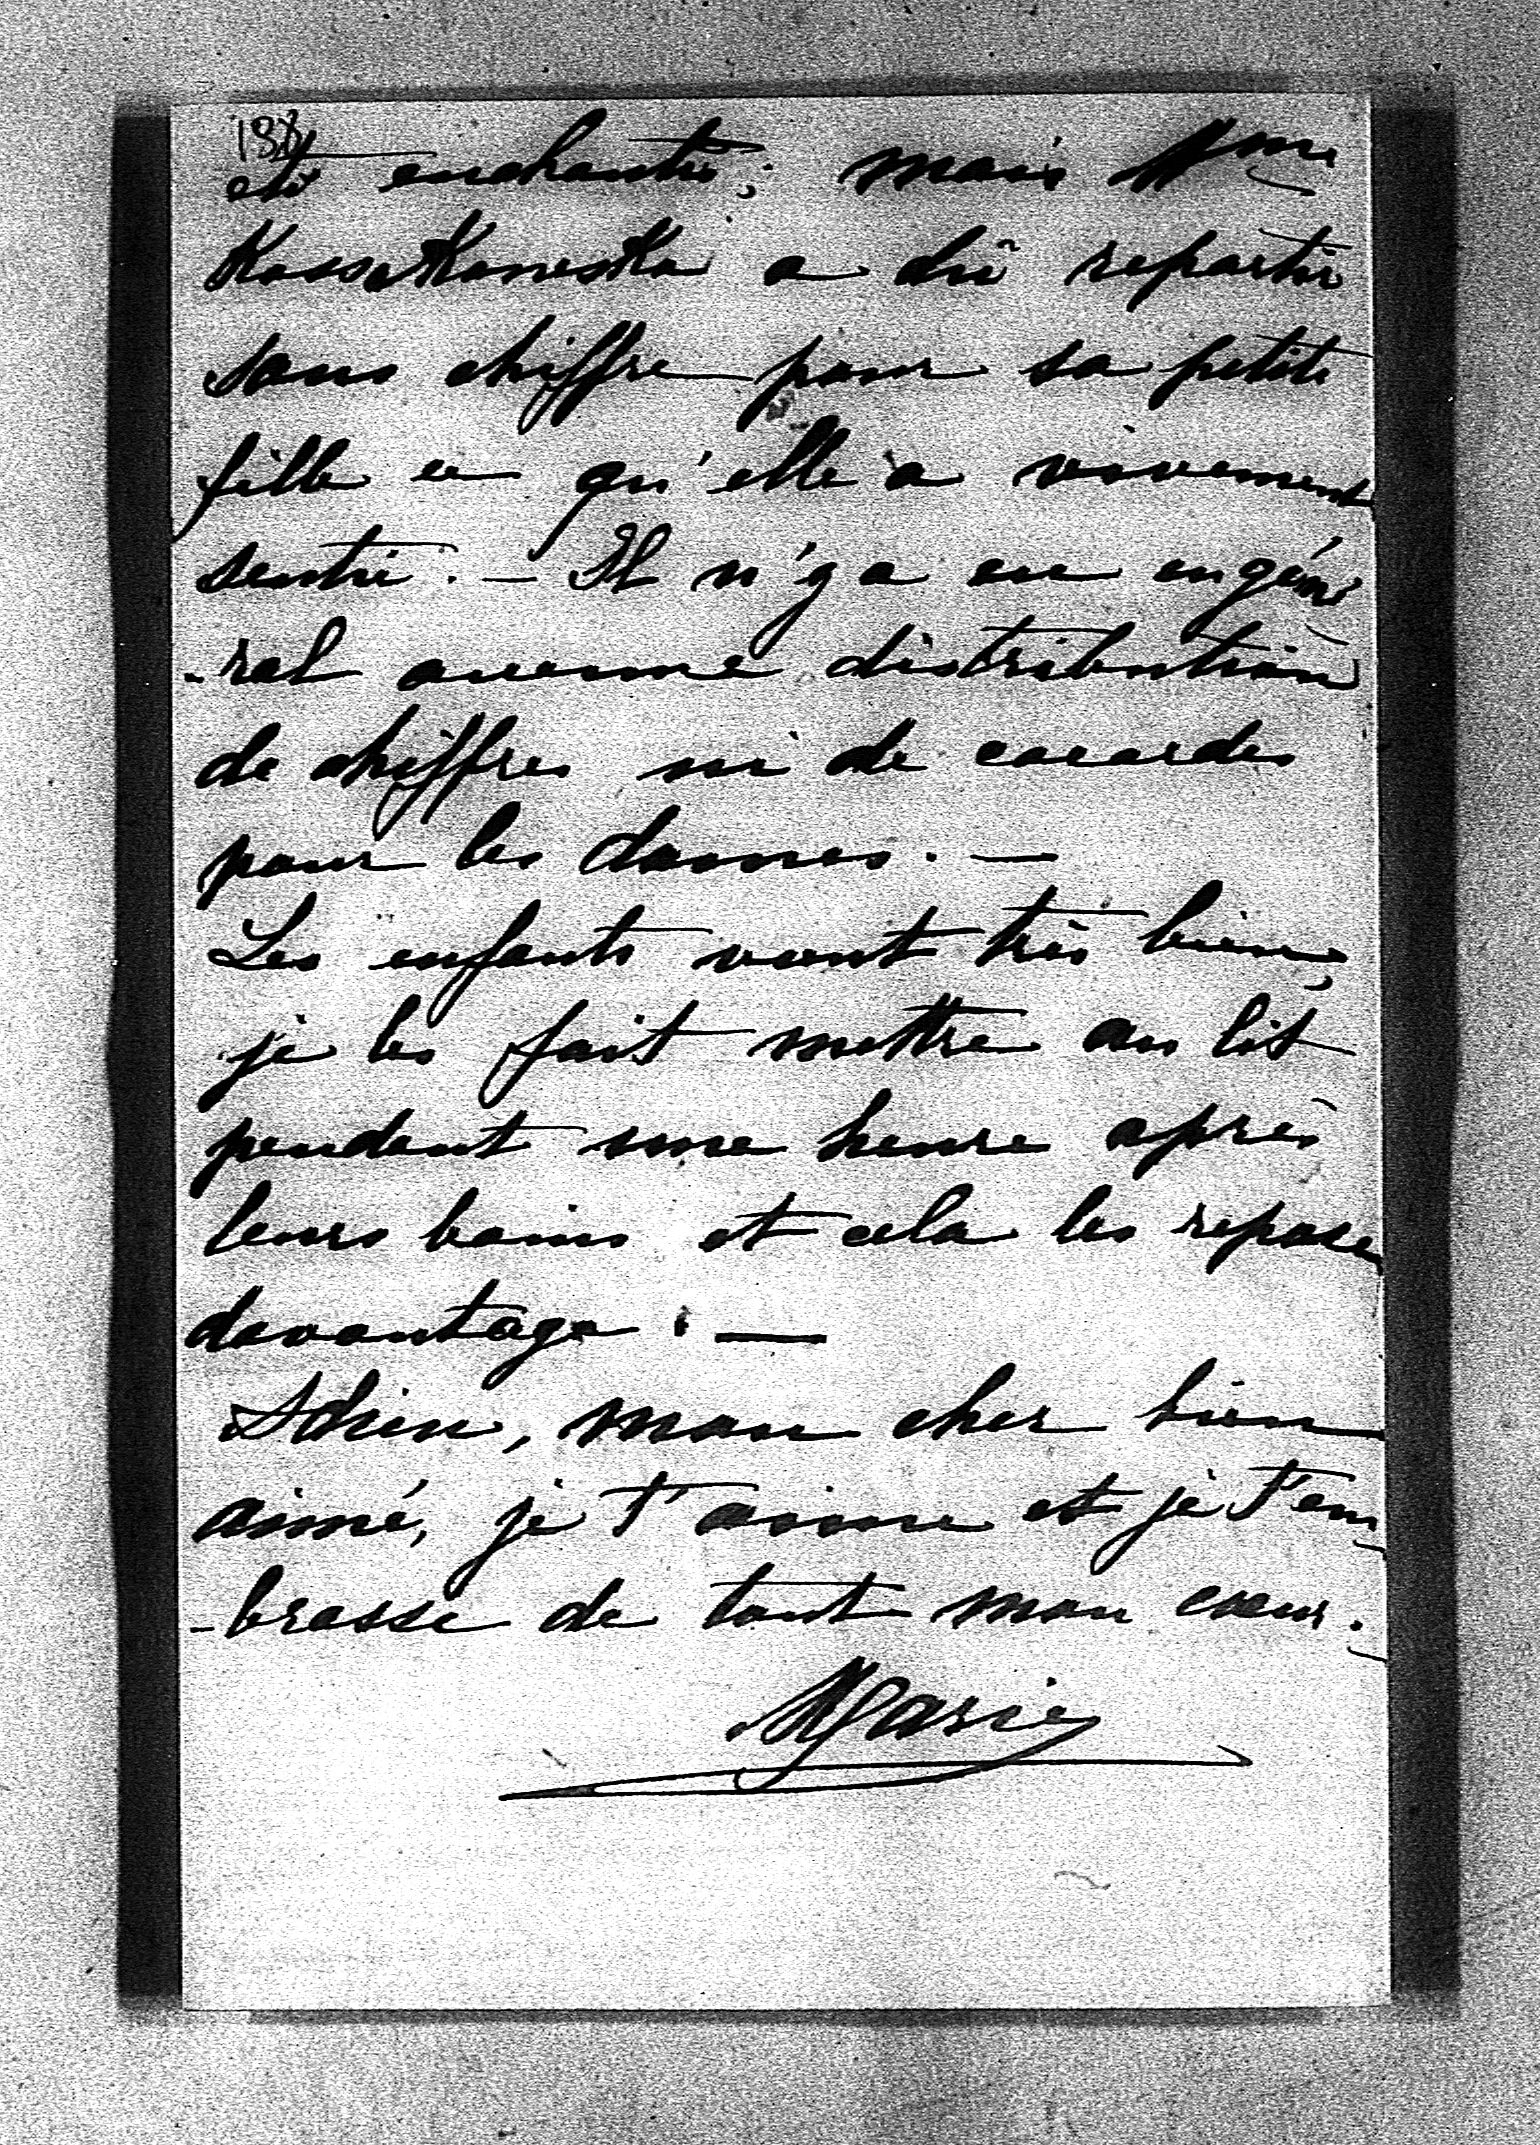 138
été enchantée; mais Mme
Kossikowska a dû repartir
sans chiffre pour sa petite
fille ce qu'elle a vivement
senti. — Il n'y a eu en géné
-ral aucune distribution
de chiffres ni de cocardes
pour les dames. —
Les enfants vont très bien,
je les fait mettre au lit
pendant une heure après
leurs bains et cela les repose
davantage. —
Adieu, mon cher bien
aimé, je t'aime et je t'em
-brasse de tout mon cœur.
Marie